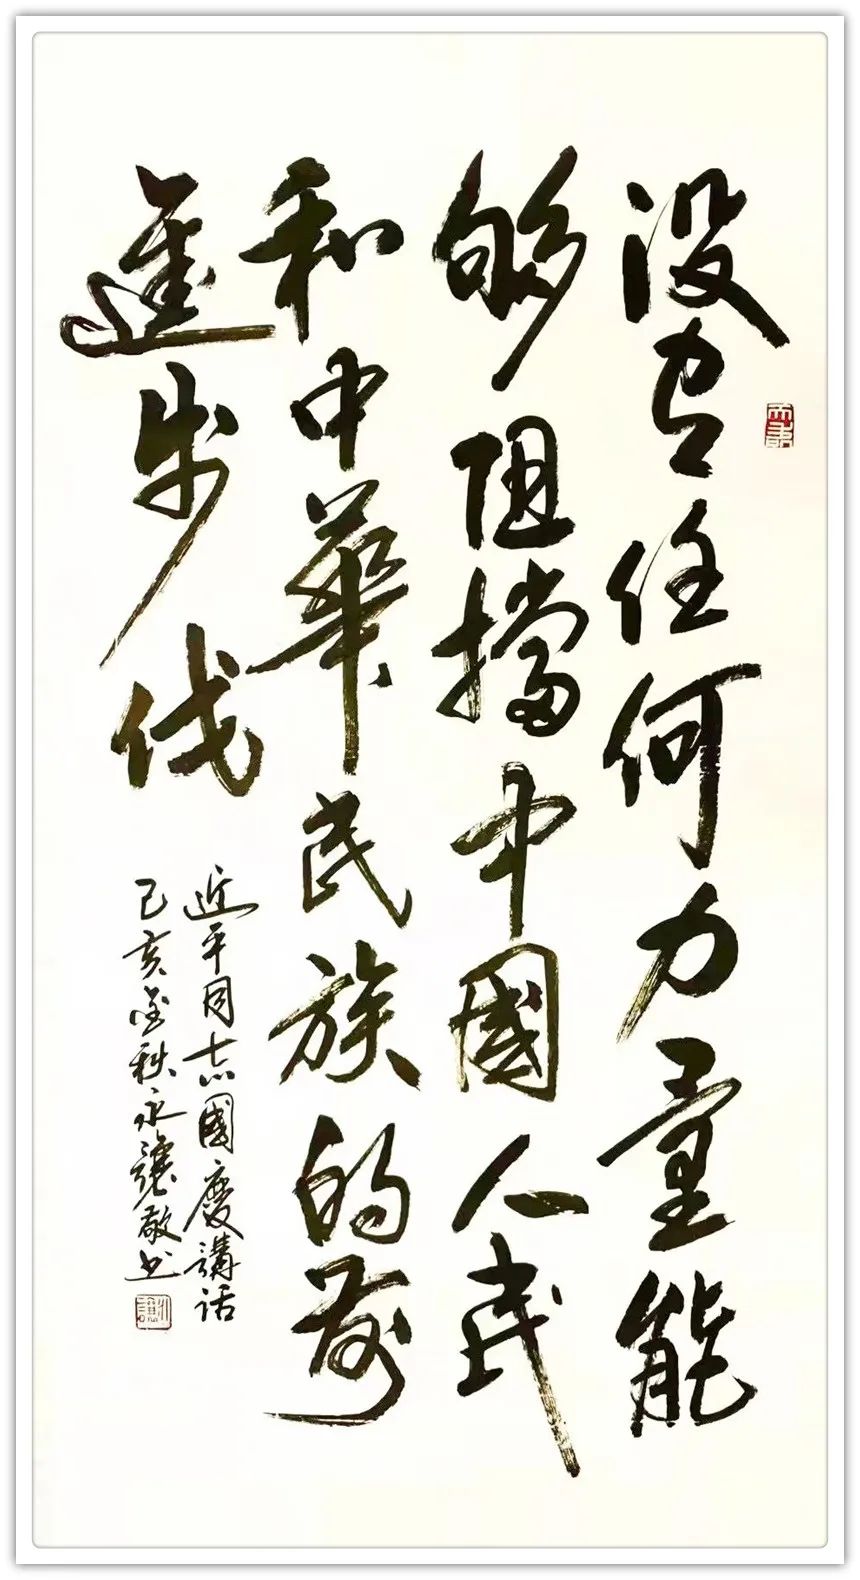 没有任何力量能
够阻擋中國人民
和中華民族的前
進步伐
近平同志國慶講話
己亥金秋永讓敬书